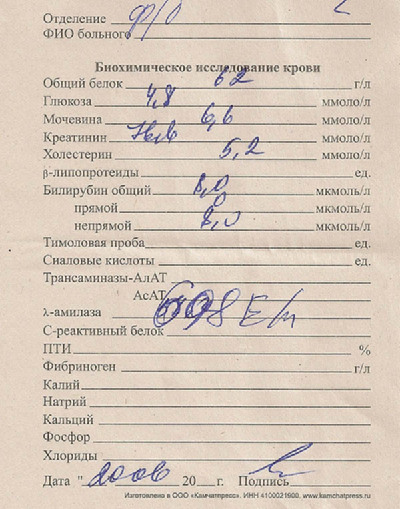 Отделение Ф/О
ФИО больного
Биохимическое исследование крови
Общий белок 62 г/л
Глюкоза 4,8 ммоло/л
Мочевина 6,6 ммоло/л
Креатинин ммоло/л
Холестерин 5,2 ммоло/л
β-липопротеиды ед.
Билирубин общий 8,0 мкмоль/л
прямой 0 мкмоль/л
непрямой 8,0 мкмоль/л
Тимоловая проба ед.
Сиаловые кислоты ед.
Трансаминазы-АлАТ
АсАТ
λ-амилаза 698 Е/л
С-реактивный белок
ПТИ %
Фибриноген г/л
Калий
Натрий
Кальций
Фосфор
Хлориды
Дата " 20 г. Подпись
Изготовлено в ООО «Камчатпресс». ИНН 4100021900. www.kamchatpress.ru